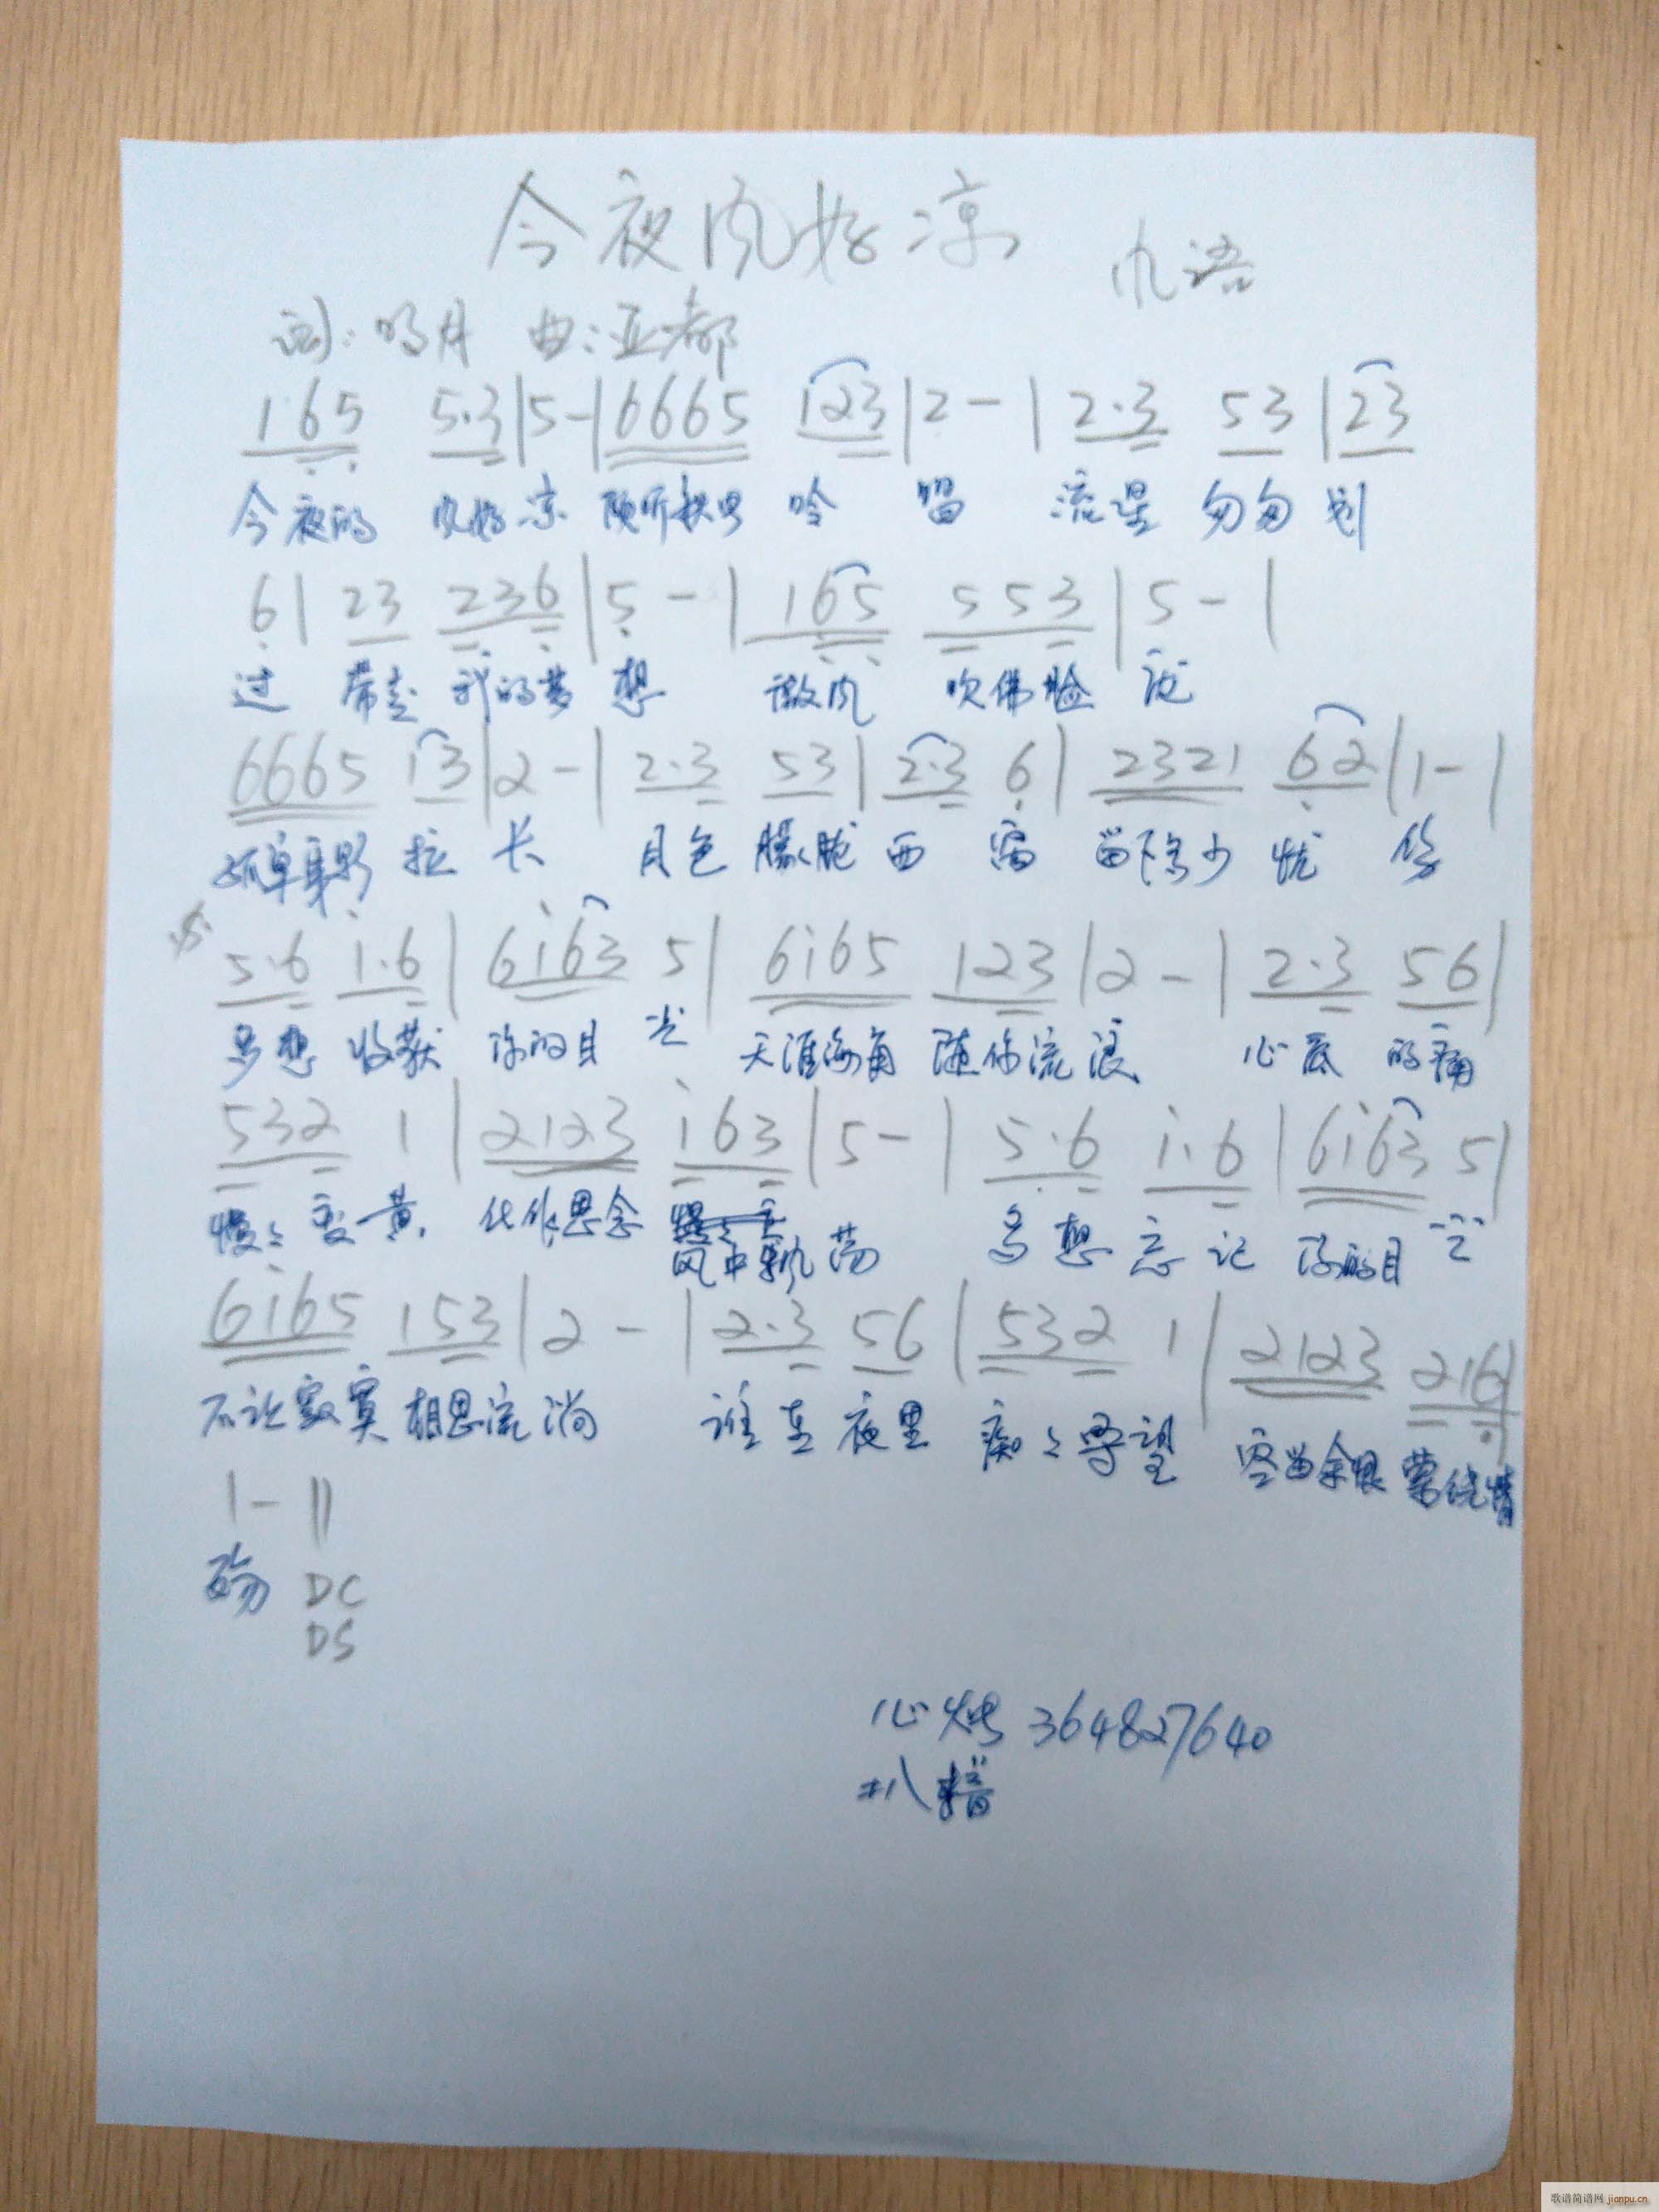 今夜风好凉
词:明月 曲:亚都
1 6 5 5·3 | 5 - | 6 6 6 5 1 2 3 | 2 - | 2·3 5 3 | 2 3
今夜的 风好凉 倾听秋 吟唱 流星 匆匆 划
6 | 2 3 2 3 6 | 5 - | 1 6 5 5 5 3 | 5 - |
过 带走 我的梦 想 微风 吹佛脸
6 6 6 5 1 3 | 2 - | 2·3 5 3 | 2·3 6 | 2 3 2 1 6 2 | 1 - |
孤单身影 拉 长 月色 朦胧 西 窗 留下多少 忧 伤
5·6 i·6 | 6 i 6 3 5 | 6 i 6 5 1 2 3 | 2 - | 2·3 5 6 |
多想 收藏 你的目 光 天涯海角 随你流浪 心底 的痛
5 3 2 1 | 2 1 2 3 i 6 3 | 5 - | 5·6 i·6 | 6 i 6 3 5 |
慢々变黄 化作思念 风中飘荡 多想忘记 你的目 光
6 i 6 5 1 5 3 | 2 - | 2·3 5 6 | 5 3 2 1 | 2 1 2 3 2 1 6 |
不论寂寞 相思流淌 谁在夜里 痴々守望 空留余恨 萦绕情
1 - ||
DC
DS
心烛 364827640
扒谱
歌谱简谱网 jianpu.cn